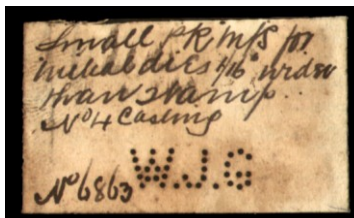 Small PR M/S for
metal dies 1/16" wider
than stamp.
No 4 Casting
W.J.G
No 6863